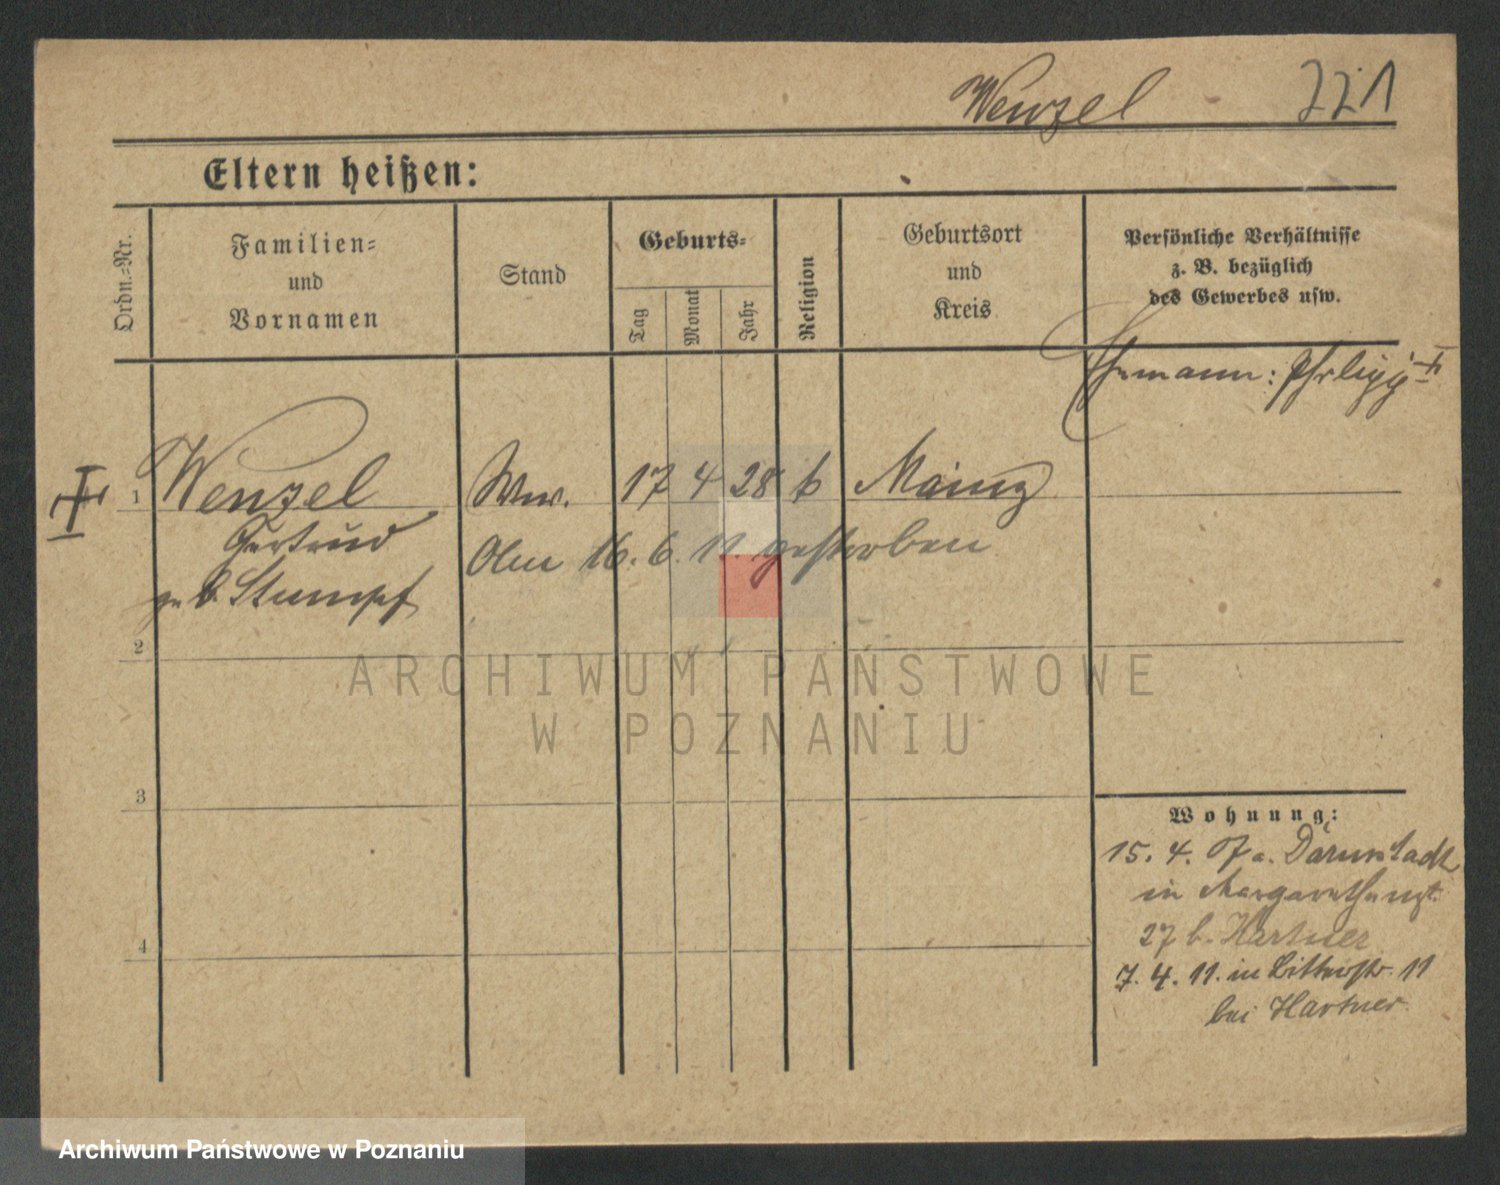 Wenzel 221
Eltern heißen:
Ordn.=Nr.
Familien=
und
Vornamen
Stand
Geburts=
Tag
Monat
Jahr
Religion
Geburtsort
und
Kreis
Persönliche Verhältnisse
z. B. bezüglich
des Gewerbes usw.
Ehemann: Philipp †
† 1 Wenzel Ww. 17 4 28 k Mainz
Gertrud
geb. Stumpf
Am 16. 6. 11. gestorben
2
3
4
Wohnung:
15. 4. 07 a. Darmstadt
in Margarethenst.
27 b. Hartner
7. 4. 11. in Ritterstr. 11
bei Hartner
ARCHIWUM PAŃSTWOWE
W POZNANIU
Archiwum Państwowe w Poznaniu